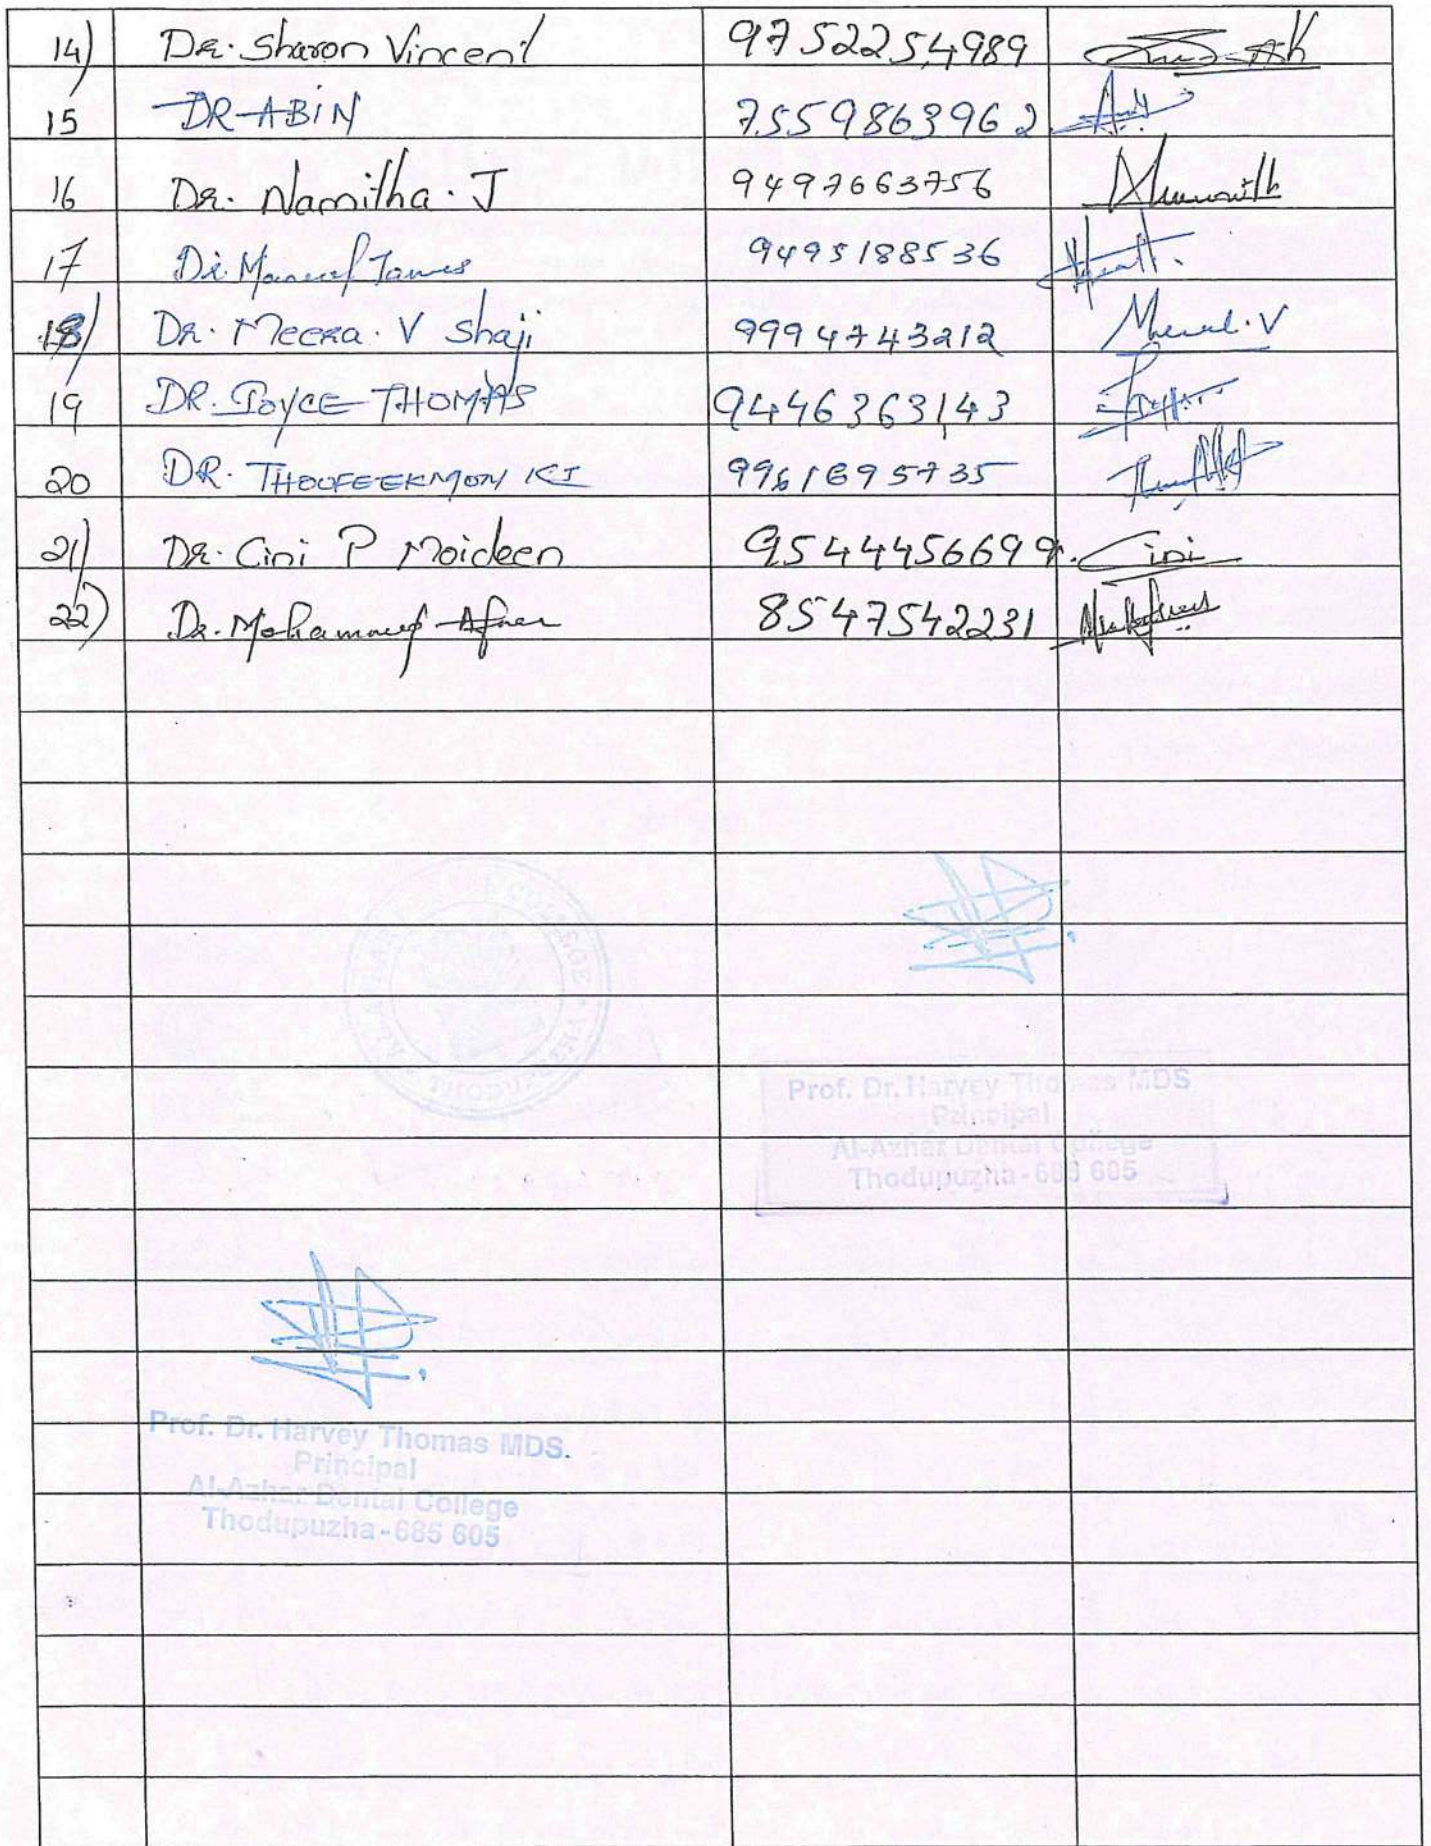 14) Dr. Sharon Vincent 9752254989
15 DR ABIN 7559863962
16 Dr. Namitha. J 9497663756
17 Dr. James 9495188536
18) Dr. Meera. V Shaji 9994743212 V
19 DR. JOYCE THOMAS 9446363143
20 DR. THOUFEEKMON KI 9961695735
21) Dr. Cini P Moideen 9544456699. Cini
22) Dr. Mohammed 8547542231
Prof. Dr. Harvey Thomas MDS
Principal
Al-Azhar Dental College
Thodupuzha - 685 605
Prof. Dr. Harvey Thomas MDS.
Principal
Al-Azhar Dental College
Thodupuzha - 685 605